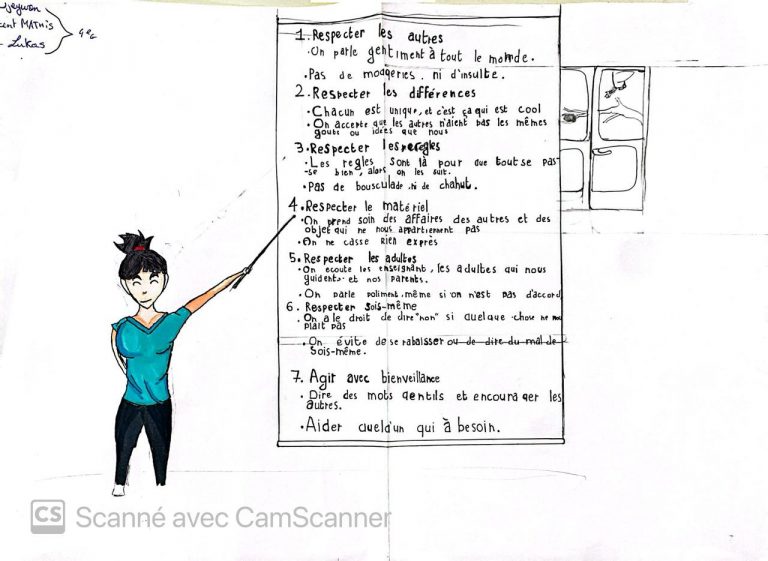 Djeywon
cent MATHIS
Lukas
4ec
1. Respecter les autres
• On parle gentiment à tout le monde.
• Pas de moqeries. ni d'insulte.
2. Respecter les différences
• Chacun est unique, et c'est ça qui est cool
• On accepte que les autres n'aient pas les mêmes
gouts ou idées que nous
3. Respecter les regles
• Les regles sont là pour que tout se pas-
-se bien, alors on les suit.
• Pas de bousculade, ni de chahut.
4. Respecter le matériel
• On prend soin des affaires des autres et des
objet qui ne nous appartiennent pas
• On ne casse rien exprès
5. Respecter les adultes
• On écoute les enseignant, les adultes qui nous
guident et nos parents.
• On parle poliment, même si on n'est pas d'accord
6. Respecter sois-même
• On a le droit de dire "non" si quelque chose ne nou
plait pas
• On évite de se rabaisser ou de dire du mal de
sois-même.
7. Agir avec bienveillance
• Dire des mots gentils et encourager les
autres.
• Aider quelqu'un qui à besoin.
CS Scanné avec CamScanner